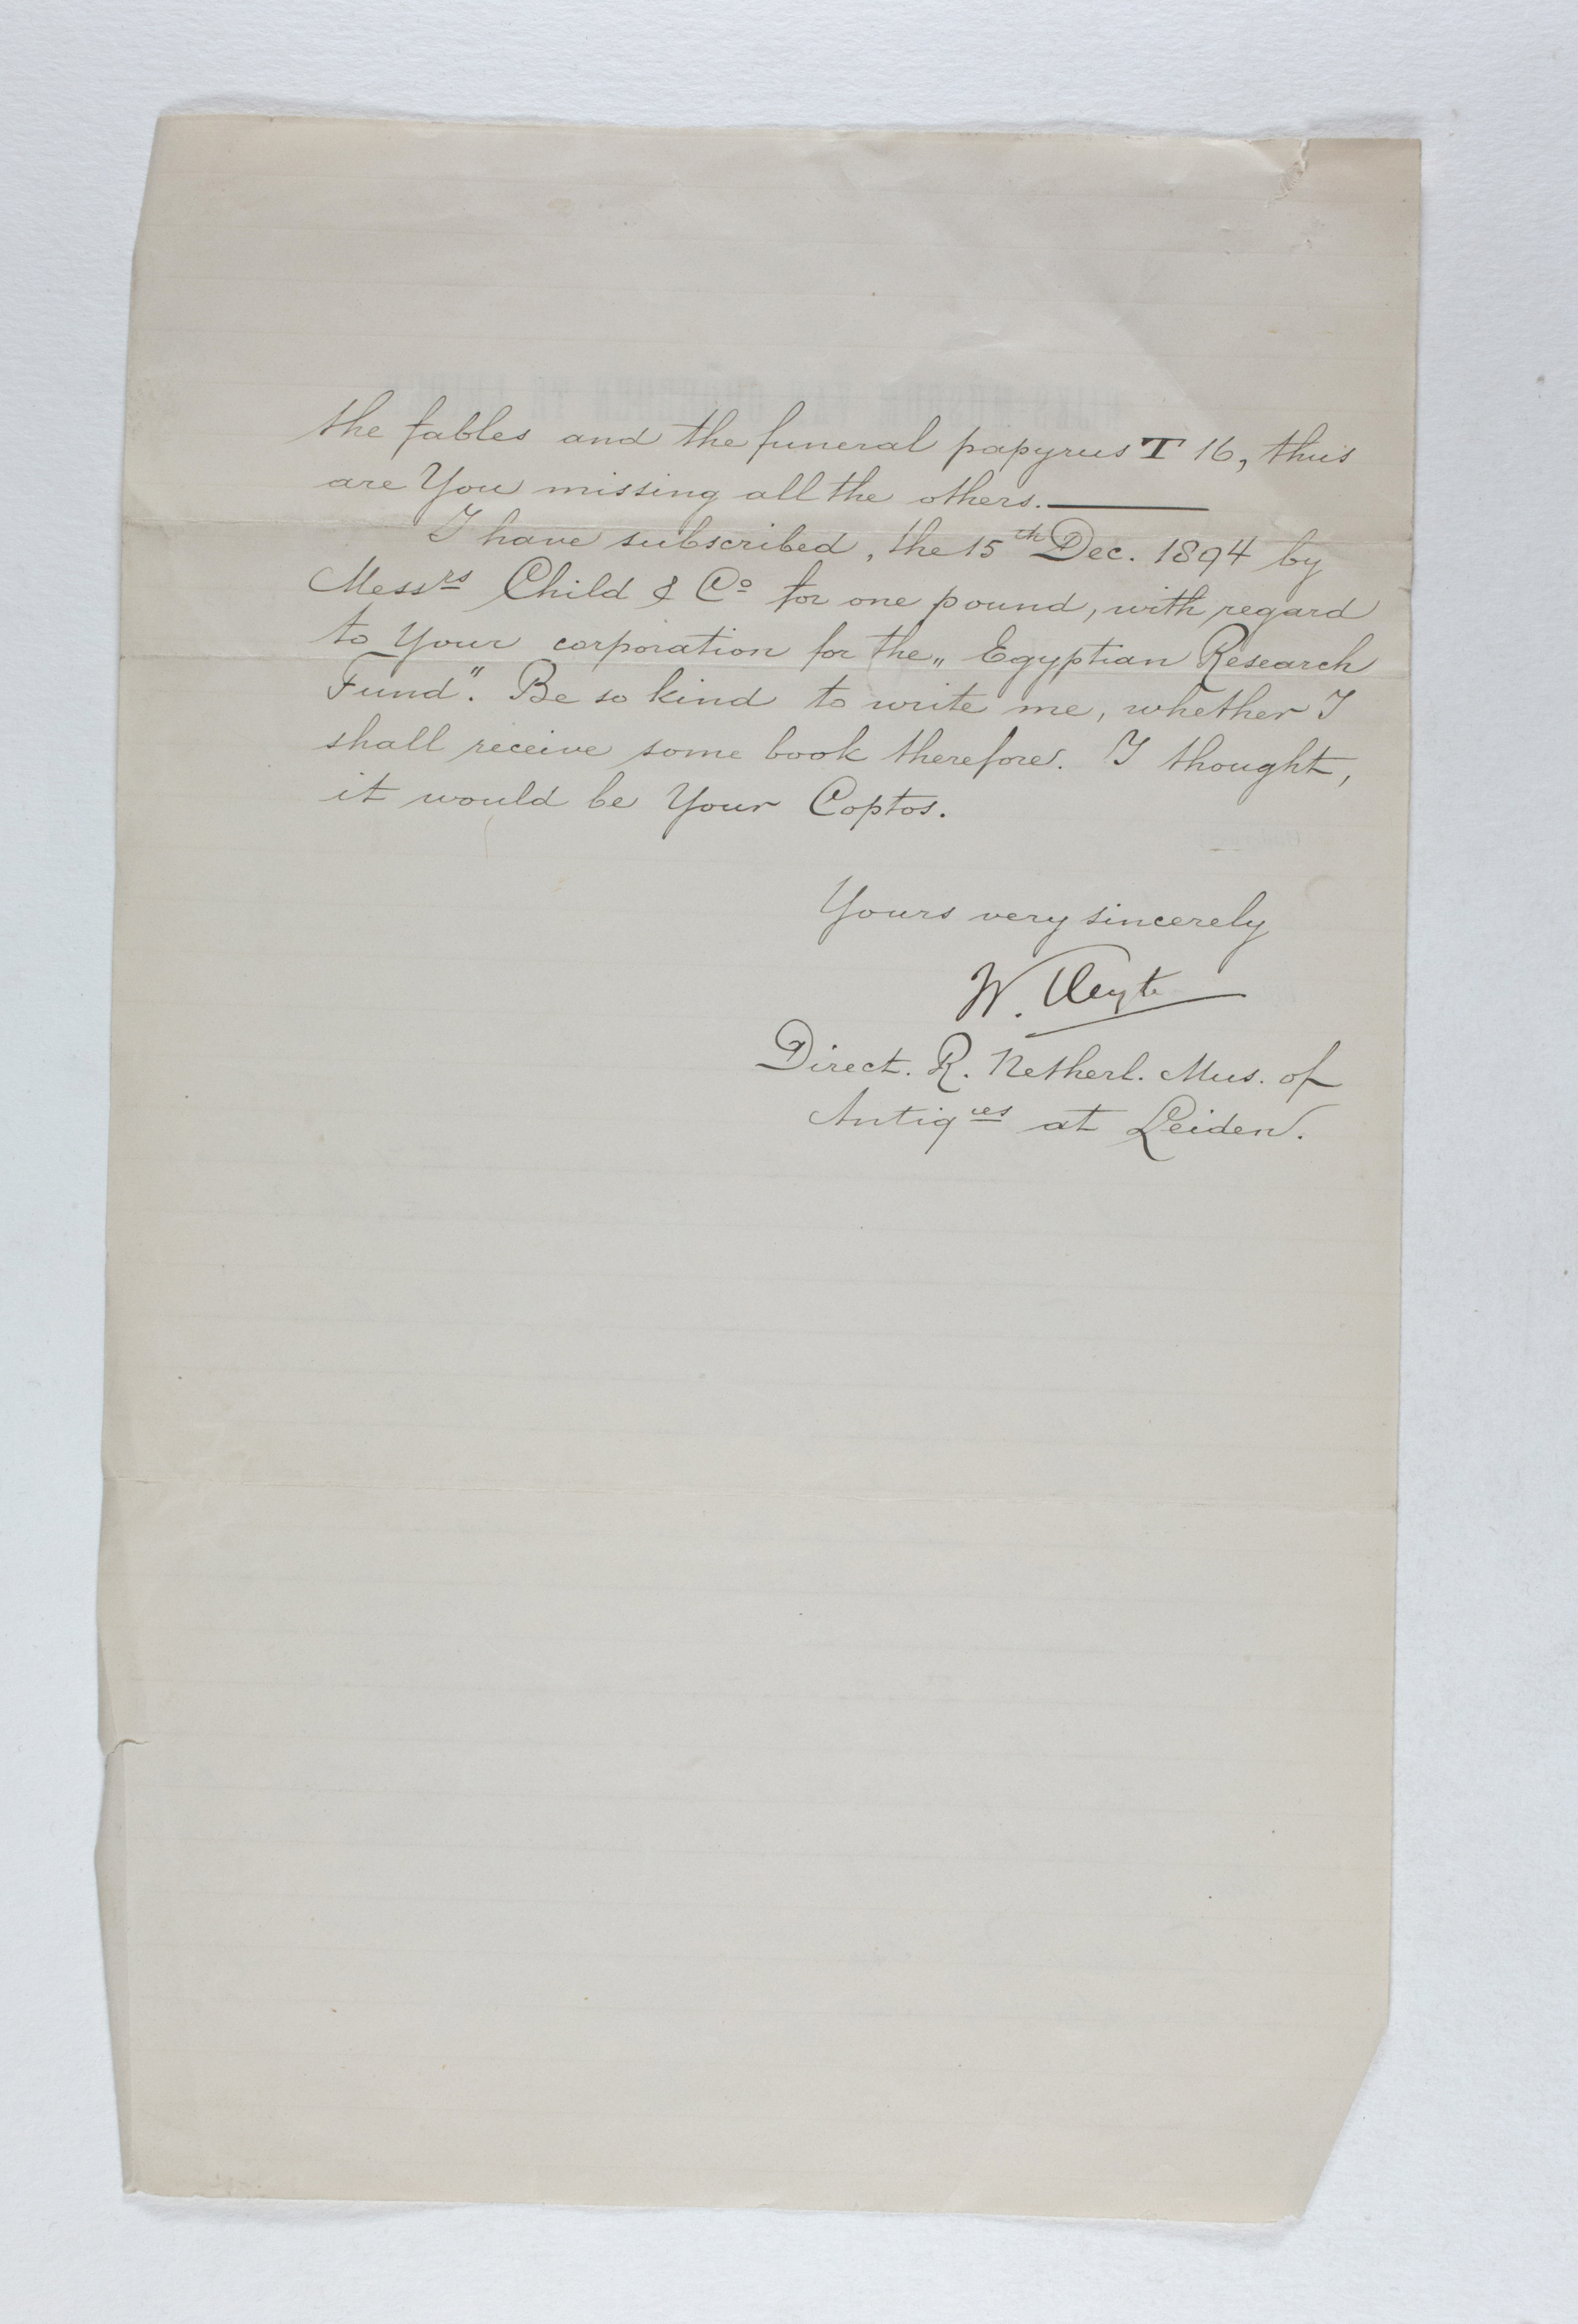 the fables and the funeral papyrus T 16, thus
are You missing all the others.—
I have subscribed, the 15th Dec. 1894 by
Messrs Child & Co for one pound, with regard
to Your corporation for the „Egyptian Research
Fund". Be so kind to write me, whether I
shall receive some book therefore. I thought,
it would be Your Coptos.
Yours very sincerely
W. Pleyte
Direct. R. Netherl. Mus. of
Antiq.ies at Leiden.